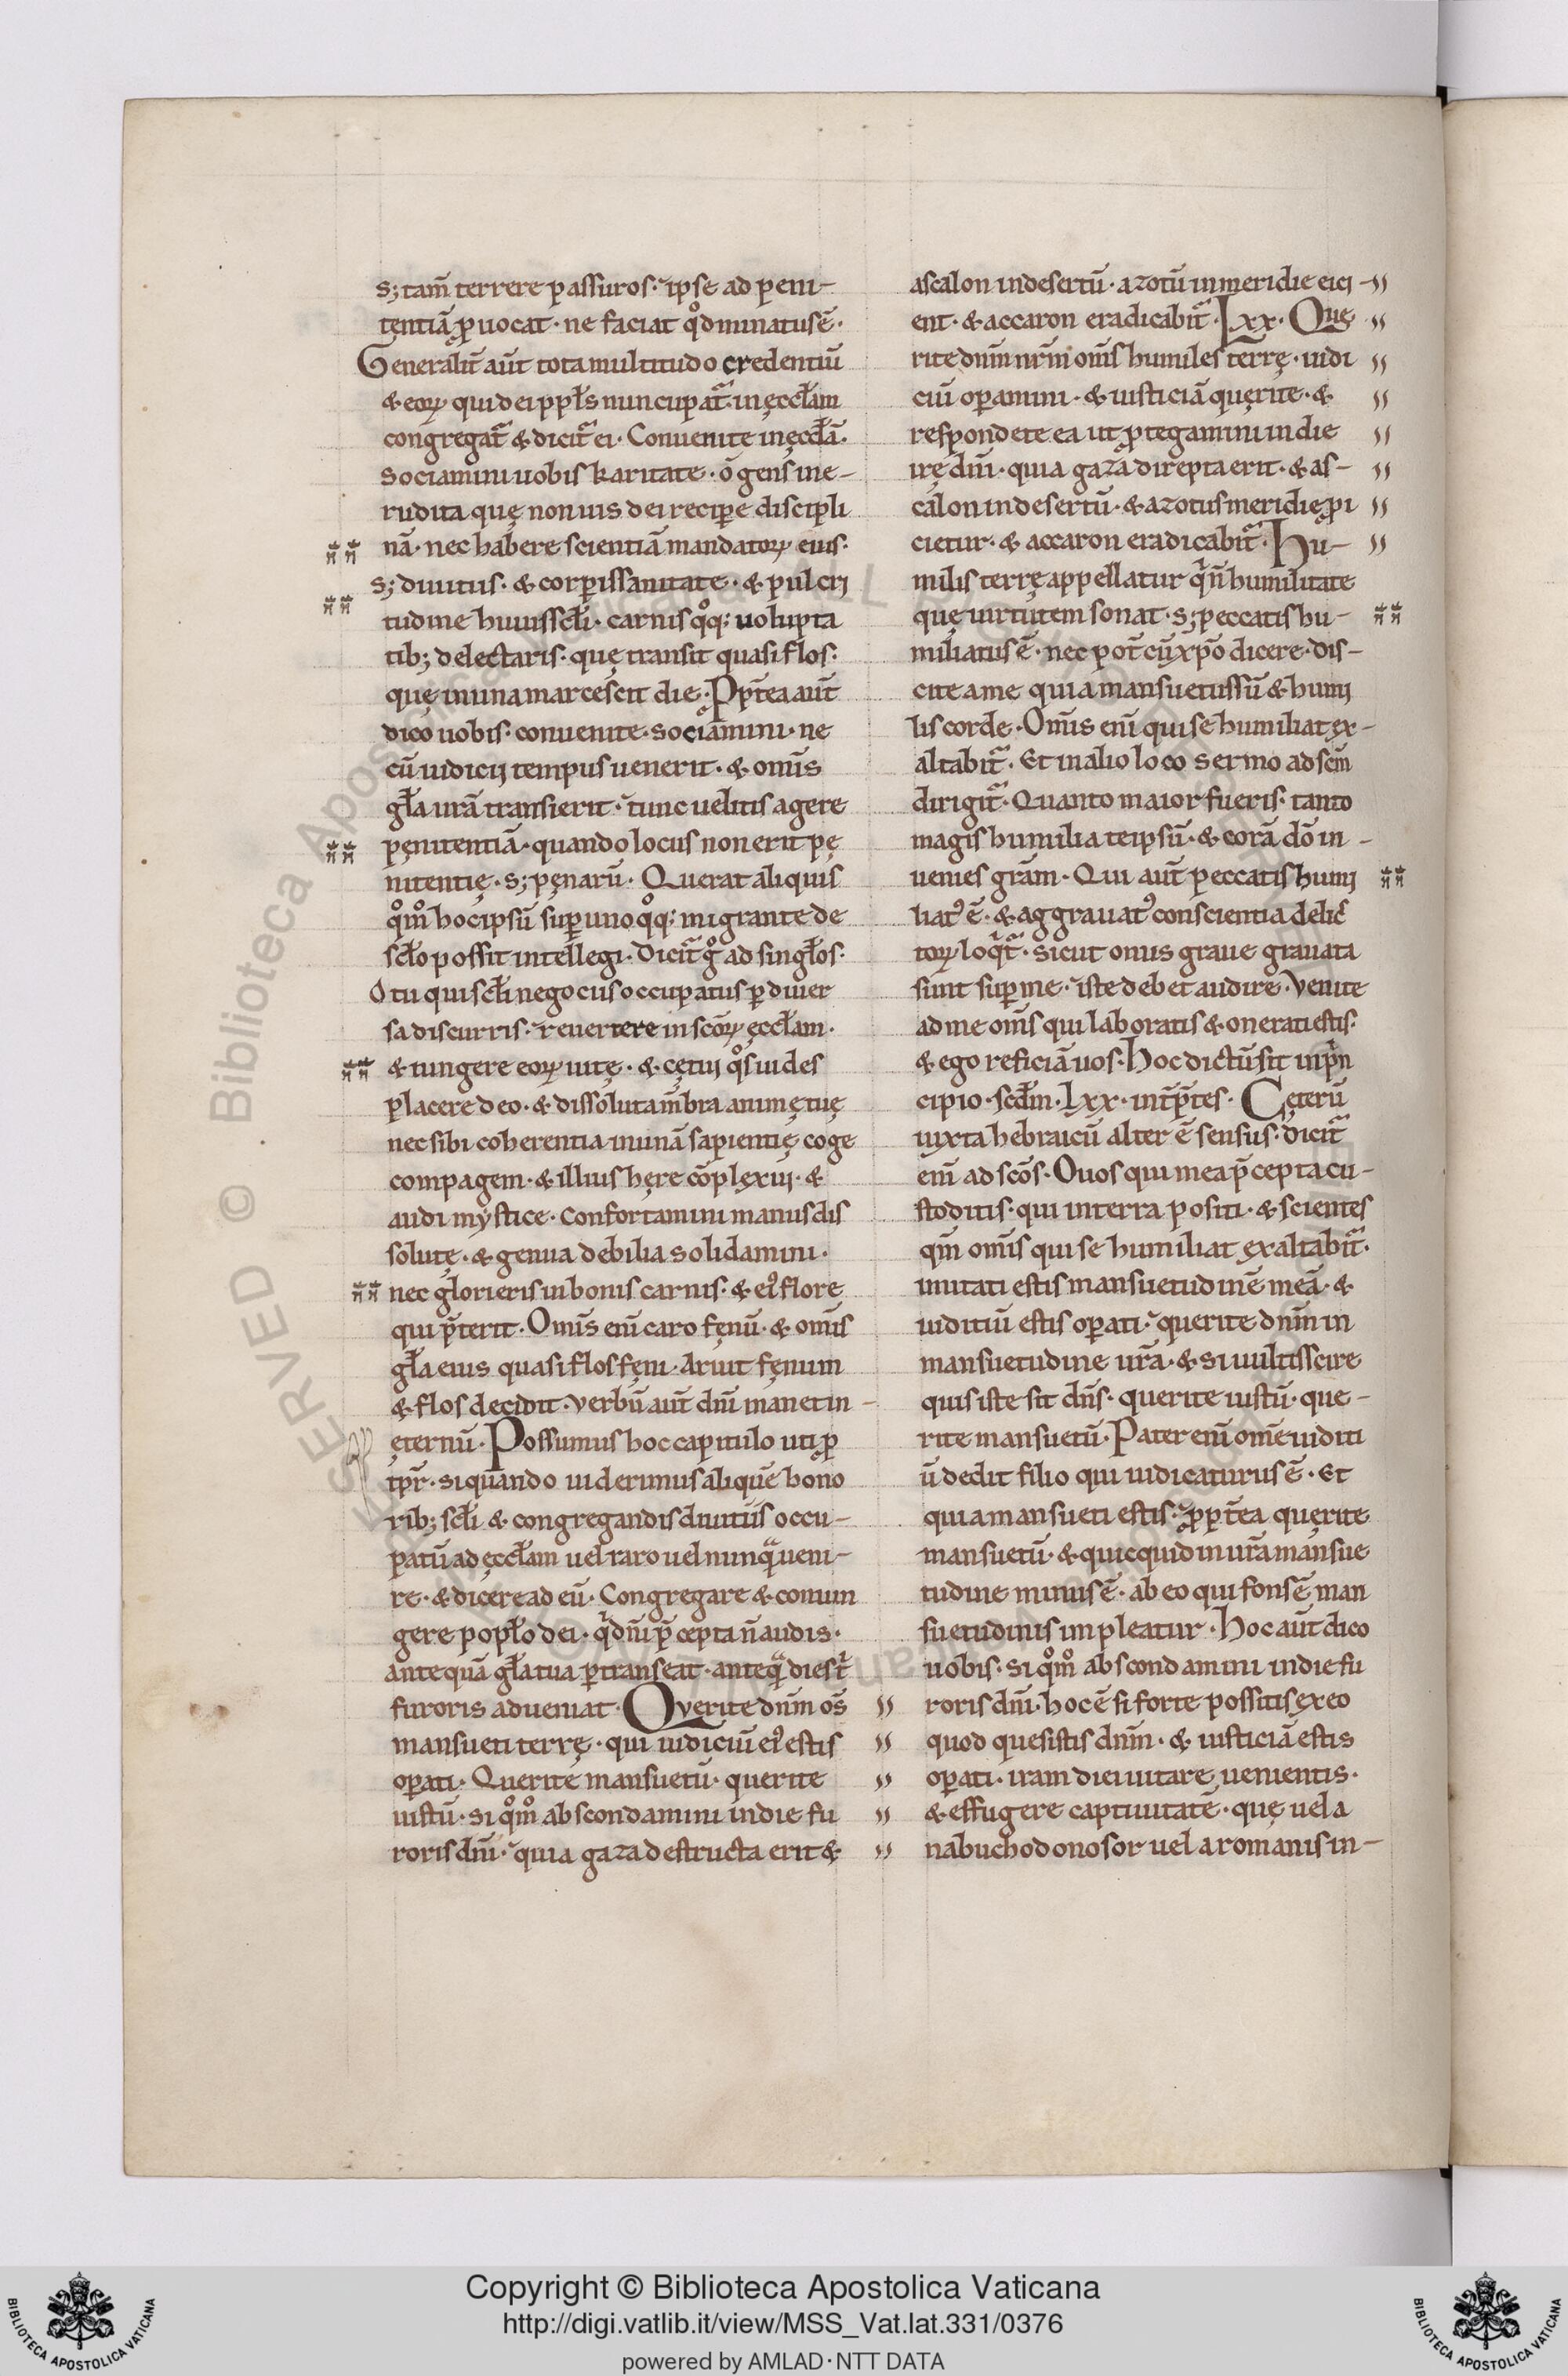 s; tam̄ terrere passuros. ipse ad peni-
tentiā ꝓuocat. ne faciat qd̊ minatus ē.
Generalit̄ aūt tota multitudo credentiū
& eoꝝ qui dei ppl̄s nuncupat̃. in ęccl̄am
congregat̃ & dicit̃ ei. Conuenite in ęccl̄ā.
sociamini uobis karitate. ō gens ine-
rudita quę non uis dei recipe̱ discipli
nā. nec habere scientiā mandatoꝝ eius.
s; diuitiis. & corꝑis sanitate. & pulcri
tudine huius scl̄i. carnis qͦq; uolupta
tib; delectaris. quę transit quasi flos.
quę in una marcescit die. Ppt̄ea aūt
dico uobis. conuenite. sociamini. ne
cū iudicij tempus uenerit. & omīs
gl̄a ur̄a transierit. tunc uelitis agere
pęnitentiā. quando locus non erit pę
nitentię. s; pęnarū. Querat aliquis
qͦmͦ hoc ipsū suꝑ uno qͦq; migrante de
scl̄o possit intellegi. Dicit̃ gͦ ad singl̄os.
O tu qui scl̄i negociis occupatus ꝑ diuer
sa discurris. reuertere in scōꝝ ęccl̄am.
& iungere eoꝝ uitę. & cętui qͦs uides
placere deo. & dissoluta m̄bra animę tuę
nec sibi coherentia in unā sapientię coge
compagem. & illius hęre cōplexui. &
audi mystice. Confortamini manus dis
solutę. & genua debilia solidamini.
nec glorieris in bonis carnis. & ei᷒ flore
qui p̄terit. Omīs enī caro fęnū. & omīs
gl̄a eius quasi flos fęni. Aruit fęnum
& flos decidit. Verbū aūt dn̄i manet in
ęternū. Possumus hoc capitulo uti ꝓ
ꝓꝑr̄. si quando uiderimus aliquē hono
rib; scl̄i & congregandis diuitiis occu-
patū ad ęccl̄am uel raro uel nunqͣ̄ ueni-
re. & dicere ad eū. Congregare & coniun
gere popl̄o dei. qͥ dn̄i p̄cepta n̄ audis.
antequā gl̄a tua ꝑtranseat. anteqͣ̄ dies t̄
furoris adueniat. Qverite dn̄m os̄
mansueti terrę. qui iudiciū ei᷒ estis
oꝑati. Querite mansuetū. querite
iustū. si qͦmͦ abscondamini in die fu
roris dn̄i. quia gaza destructa erit &
ascalon in desertū. azotū in meridie eici-
ent. & accaron eradicabit̃. Lxx. Que
rite dn̄m nr̄m om̄s humiles terrę. iudi
ciū oꝑamini. & iusticiā quęrite. &
respondete ea ut ꝓtegamini in die
irę dn̄i. quia gaza direpta erit. & as-
calon in desertū. & azotus meridię ꝓi
cietur. & accaron eradicabit̃. Hu-
milis terrę appellatur qͥ n̄ humilitate
quę uirtutem sonat. s; peccatis hu-
miliatus ē. nec pot̄ cū xp̄o dicere. dis-
cite a me quia mansuetus sū & humi
lis corde. Om̄is enī qui se humiliat ex-
altabit̃. Et in alio loco sermo ad scm̄
dirigit̃. Quanto maior fueris. tanto
magis humilia teipsū. & corā dō in-
uenies grām. Qui aūt peccatis humi
liat᷒ ē. & aggrauat᷒ conscientia delic
toꝝ loqͥt̃. sicut onus graue grauata
sunt suꝑ me. iste debet audire. Venite
ad me om̄s qui laboratis & onerati estis.
& ego reficiā uos. Hoc dictū sit in pͥn
cipio. scd̄m. Lxx. int̄p̄tes. Cęterū
iuxta hebraicū alter ē sensus. dicit̃
enī ad scōs. Vos qui mea p̄cepta cu-
stoditis. qui in terra positi. & scientes
qm̄ om̄is qui se humiliat exaltabit̃.
imitati estis mansuetudinē meā. &
iuditiū estis oꝑati. querite dn̄m in
mansuetudine ur̄a. & si uultis scire
quis iste sit dn̄s. querite iustū. que-
rite mansuetū. Pater enī om̄e iuditi
ū dedit filio qui iudicaturus ē. Et
quia mansueti estis. ꝓpt̄ea quęrite
mansuetū. & quicquid in ur̄a mansue
tudine minus ē. ab eo qui fons ē man
suetudinis impleatur. Hoc aūt dico
uobis. si qͦmͦ abscondamini in die fu
roris dn̄i. hoc ē si forte possitis ex eo
quod quesistis dn̄m. & iusticiā estis
oꝑati. iram diei uitare uenientis.
& effugere captiuitatē. quę uel a
nabuchodonosor uel a romanis in-
Copyright © Biblioteca Apostolica Vaticana
http://digi.vatlib.it/view/MSS_Vat.lat.331/0376
powered by AMLAD·NTT DATA
BIBLIOTECA APOSTOLICA VATICANA
BIBLIOTECA APOSTOLICA VATICANA